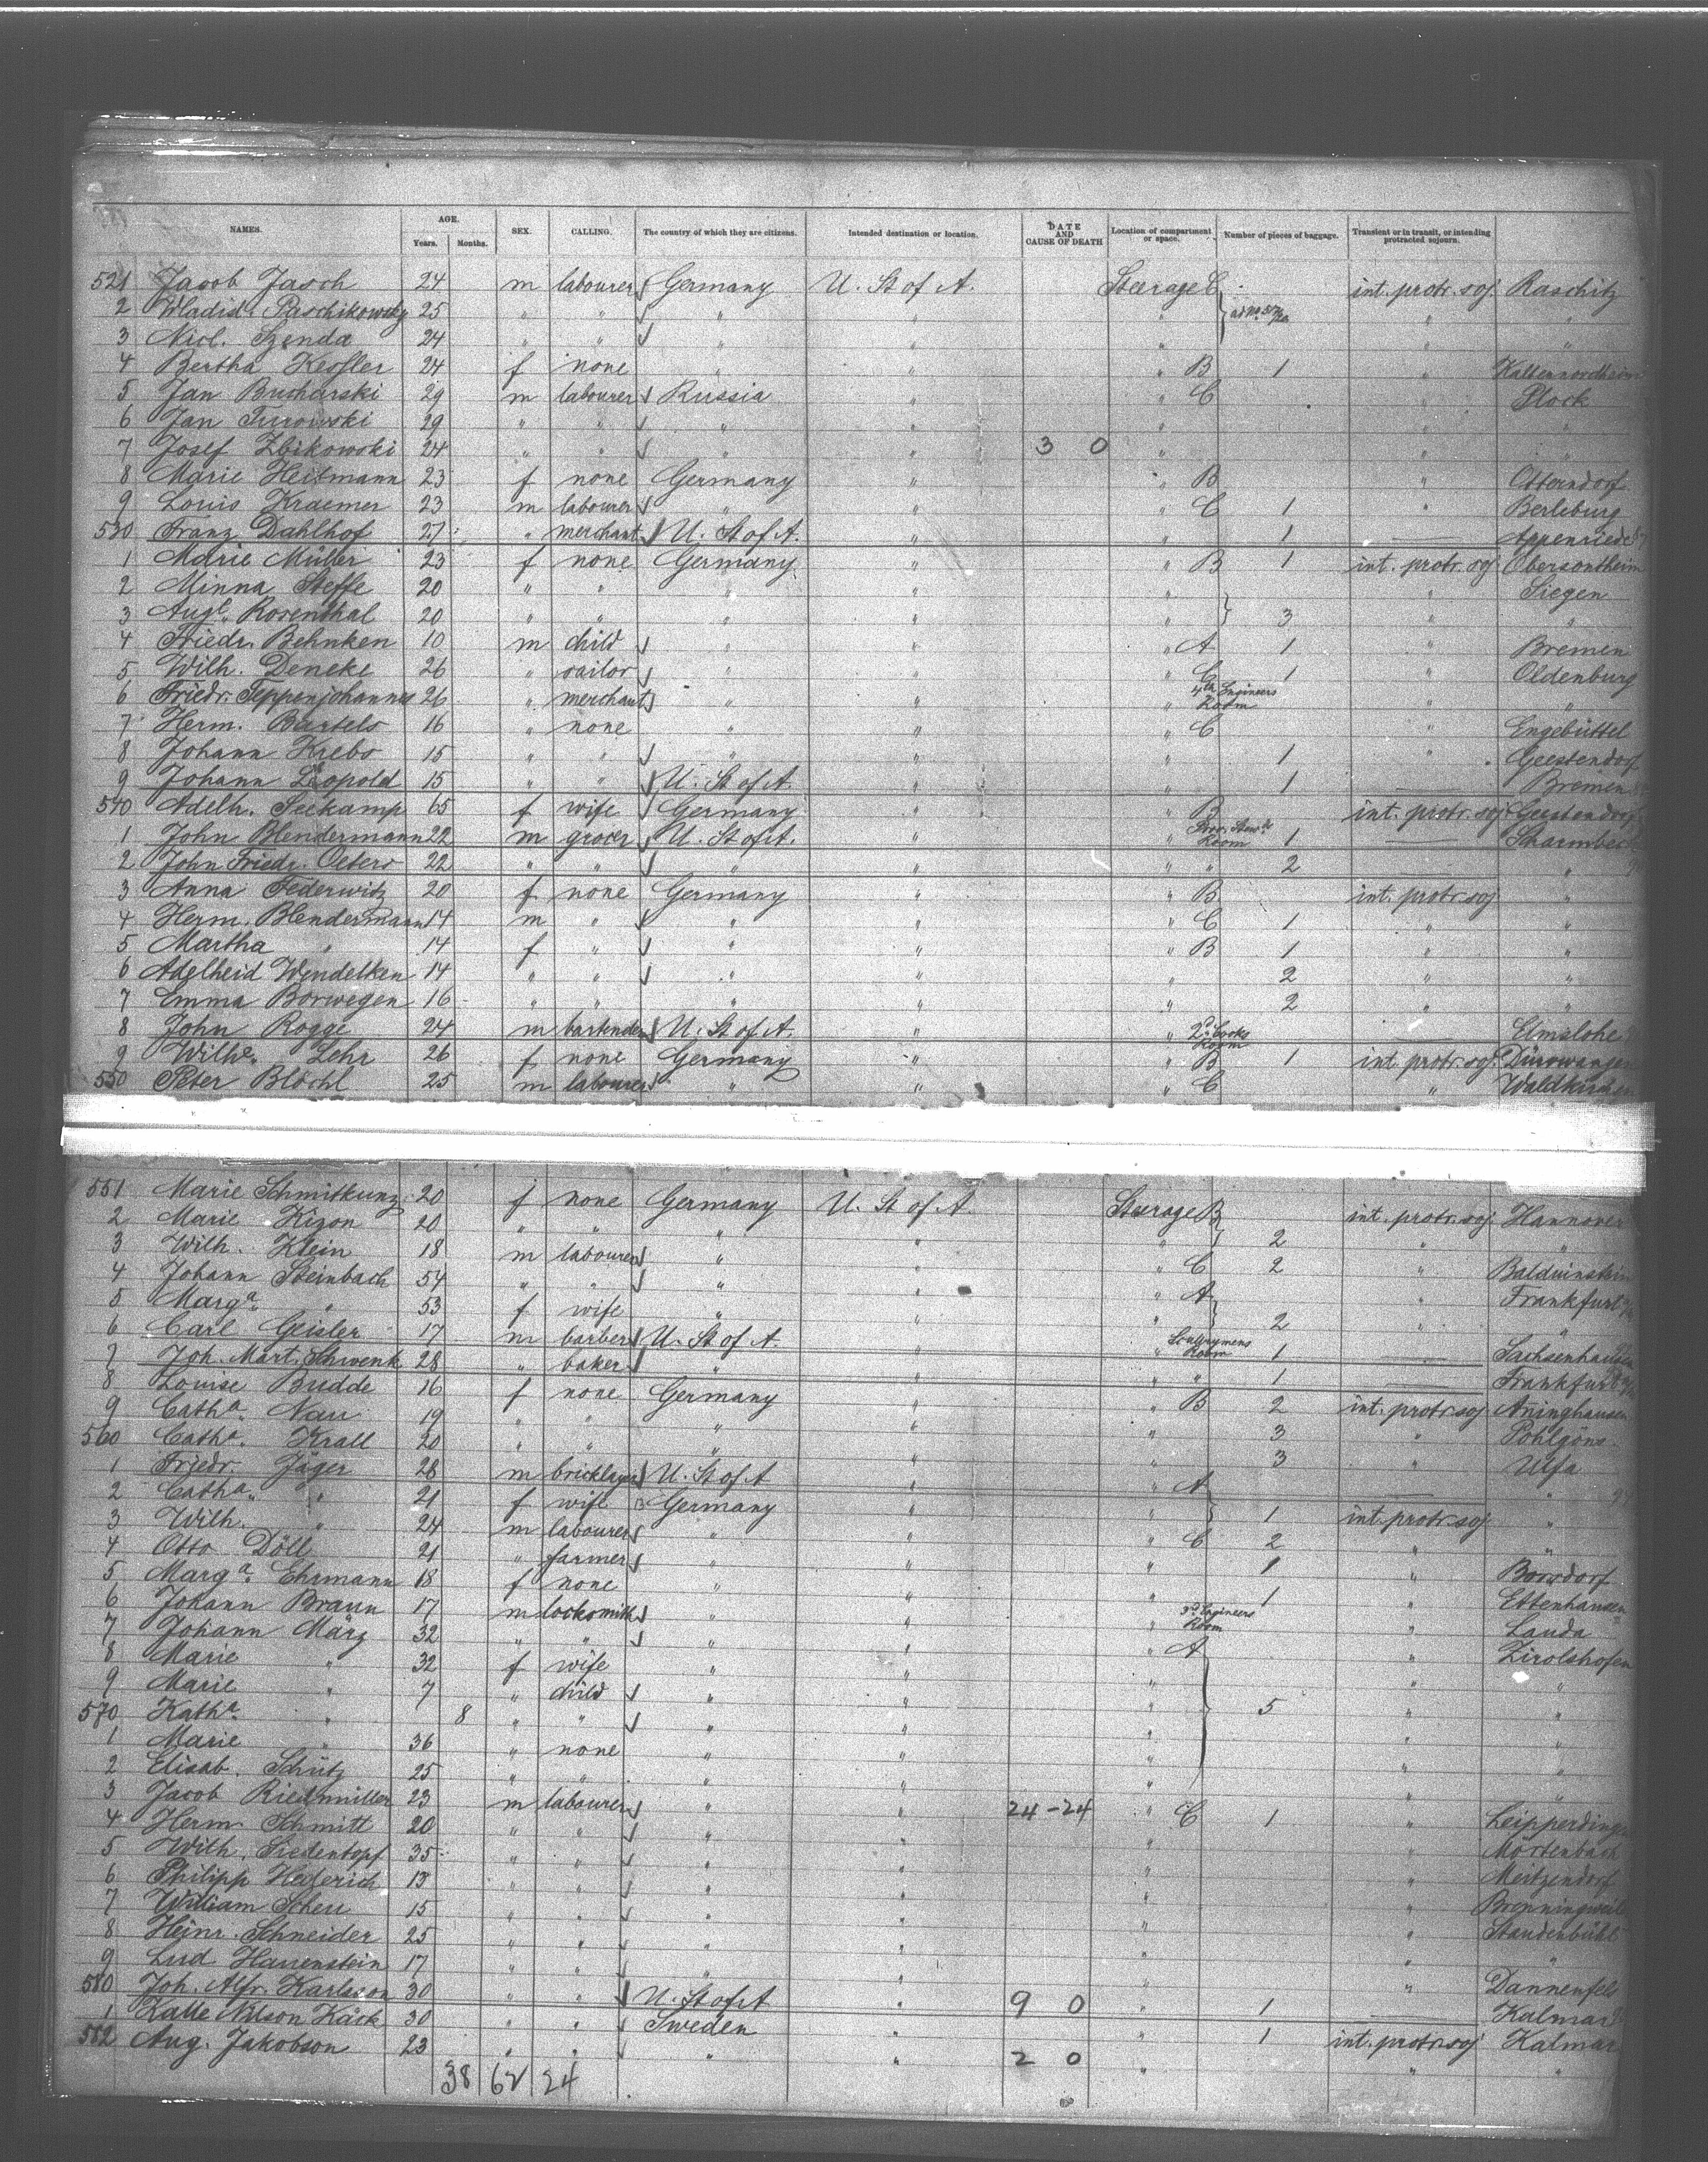 NAMES. AGE. Years. Months. SEX. CALLING. The country of which they are citizens. Intended destination or location. DATE AND CAUSE OF DEATH Location of compartment or space. Number of pieces of baggage. Transient or in transit, or intending protracted sojourn.
521 Jacob Jasch 24 m labourer Germany U. St of A. Steerage C int. protr. soj. Raschitz
2 Wladisl. Paschikowsky 25 " " " " " " "
3 Nicl. Szenda 24 " " " " " " "
4 Bertha Kessler 24 f none " " " B 1 " Kaltennordheim
5 Jan Bucharski 29 m labourer Russia " " C " Plock
6 Jan Turowski 29 " " " " " " "
7 Josef Zbikowski 24 " " " " 3 0 " " "
8 Marie Heitmann 23 f none Germany " " B " Otterndorf
9 Louis Kraemer 23 m labourer " " " C 1 " Berleburg
530 Franz Dahlhof 27 " merchant U. St of A. " " 1 — Appenriede
1 Marie Müller 23 f none Germany " " B 1 int. protr. soj. Obersontheim
2 Minna Steffe 20 " " " " " " Siegen
3 Augte. Rosenthal 20 " " " " " 3 " "
4 Friedr. Behnken 10 m child " " " A 1 " Bremen
5 Wilh. Deneke 26 " sailor " " " C 1 " Oldenburg
6 Friedr. Teppenjohannes 26 " merchant " " " 4th Engineers Room " "
7 Herm. Bartels 16 " none " " " C " Engebüttel
8 Johann Krebs 15 " " " " " 1 " Geestendorf
9 Johann Leopold 15 " " U. St of A. " " 1 — Bremen
540 Adelh. Seekamp 65 f wife Germany " " B int. protr. soj. Geestendorf
1 John Blendermann 22 m grocer U. St of A. " " Room 1 — Scharmbeck
2 John Friedr. Oeters 22 " " " " " " 2 — "
3 Anna Federwitz 20 f none Germany " " B int. protr. soj "
4 Herm. Blendermann 14 m " " " " C 1 " "
5 Martha " 14 f " " " " B 1 " "
6 Adelheid Wendelken 14 " " " " " 2 " "
7 Emma Borwegen 16 " " " " " 2 " "
8 John Rogge 24 m bartender U. St of A. " " 2d Cooks Room — Elmslohe
9 Wilhe. Lehr 26 f none Germany " " B 1 int. protr. soj. Dürrwangen
550 Peter Blöchl 25 m labourer " " " C " Waldkirchen
551 Marie Schmitkunz 20 f none Germany U. St of A. Steerage B int. protr. soj. Hannover
2 Marie Kizon 20 " " " " " 2 " "
3 Wilh. Klein 18 m labourer " " " C 2 " Balduinstein
4 Johann Steinbach 54 " " " " " A " Frankfurt
5 Marga. " 53 f wife " " " 2 " "
6 Carl Geisler 17 m barber U. St of A. " " Scullerymens Room 1 — Sachsenhausen
7 Joh. Mart. Schwenk 28 " baker " " " " 1 — Frankfurt
8 Louise Budde 16 f none Germany " " B 2 int. protr. soj Aninghausen
9 Catha. Nau 19 " " " " " 3 " Pohlgöns
560 Catha. Krall 20 " " " " " 3 " Ulfa
1 Friedr. Jäger 28 m bricklayer U. St of A " " A — "
2 Catha. " 21 f wife Germany " " 1 int. protr. soj "
3 Wilh. " 24 m labourer " " " C 2 " "
4 Otto Döll 21 " farmer " " " 1 " Borsdorf
5 Marga. Ehrmann 18 f none " " " 1 " Ettenhausen
6 Johann Braun 17 m locksmith " " " 3d Engineers Room " Lauda
7 Johann März 32 " " " " " A " Zirolshofen
8 Marie " 32 f wife " " " " "
9 Marie " 7 " child " " " " "
570 Katha. " 8 " " " " " 5 " "
1 Marie " 36 " none " " " " "
2 Elisab. Schütz 25 " " " " " " "
3 Jacob Riedmüller 23 m labourer " " 24-24 " C 1 " Leipperdingen
4 Herm. Schmitt 20 " " " " " " Mörtenbach
5 Wilh. Siedentopf 35 " " " " " " Meitzendorf
6 Philipp Hederich 13 " " " " " "
7 William Scheu 15 " " " " " " Standenbühl
8 Heinr. Schneider 25 " " " " " " "
9 Lud. Hauenstein 17 " " " " " " Dannenfels
580 Joh. Alfr. Karlsson 30 " " U. St of A " 9 0 " 1 Kalmar
1 Kalle Nilson Käck 30 " " Sweden " " 1 int. protr. soj Kalmar
582 Aug. Jakobson 23 " " " " 2 0 " " "
38 62 24